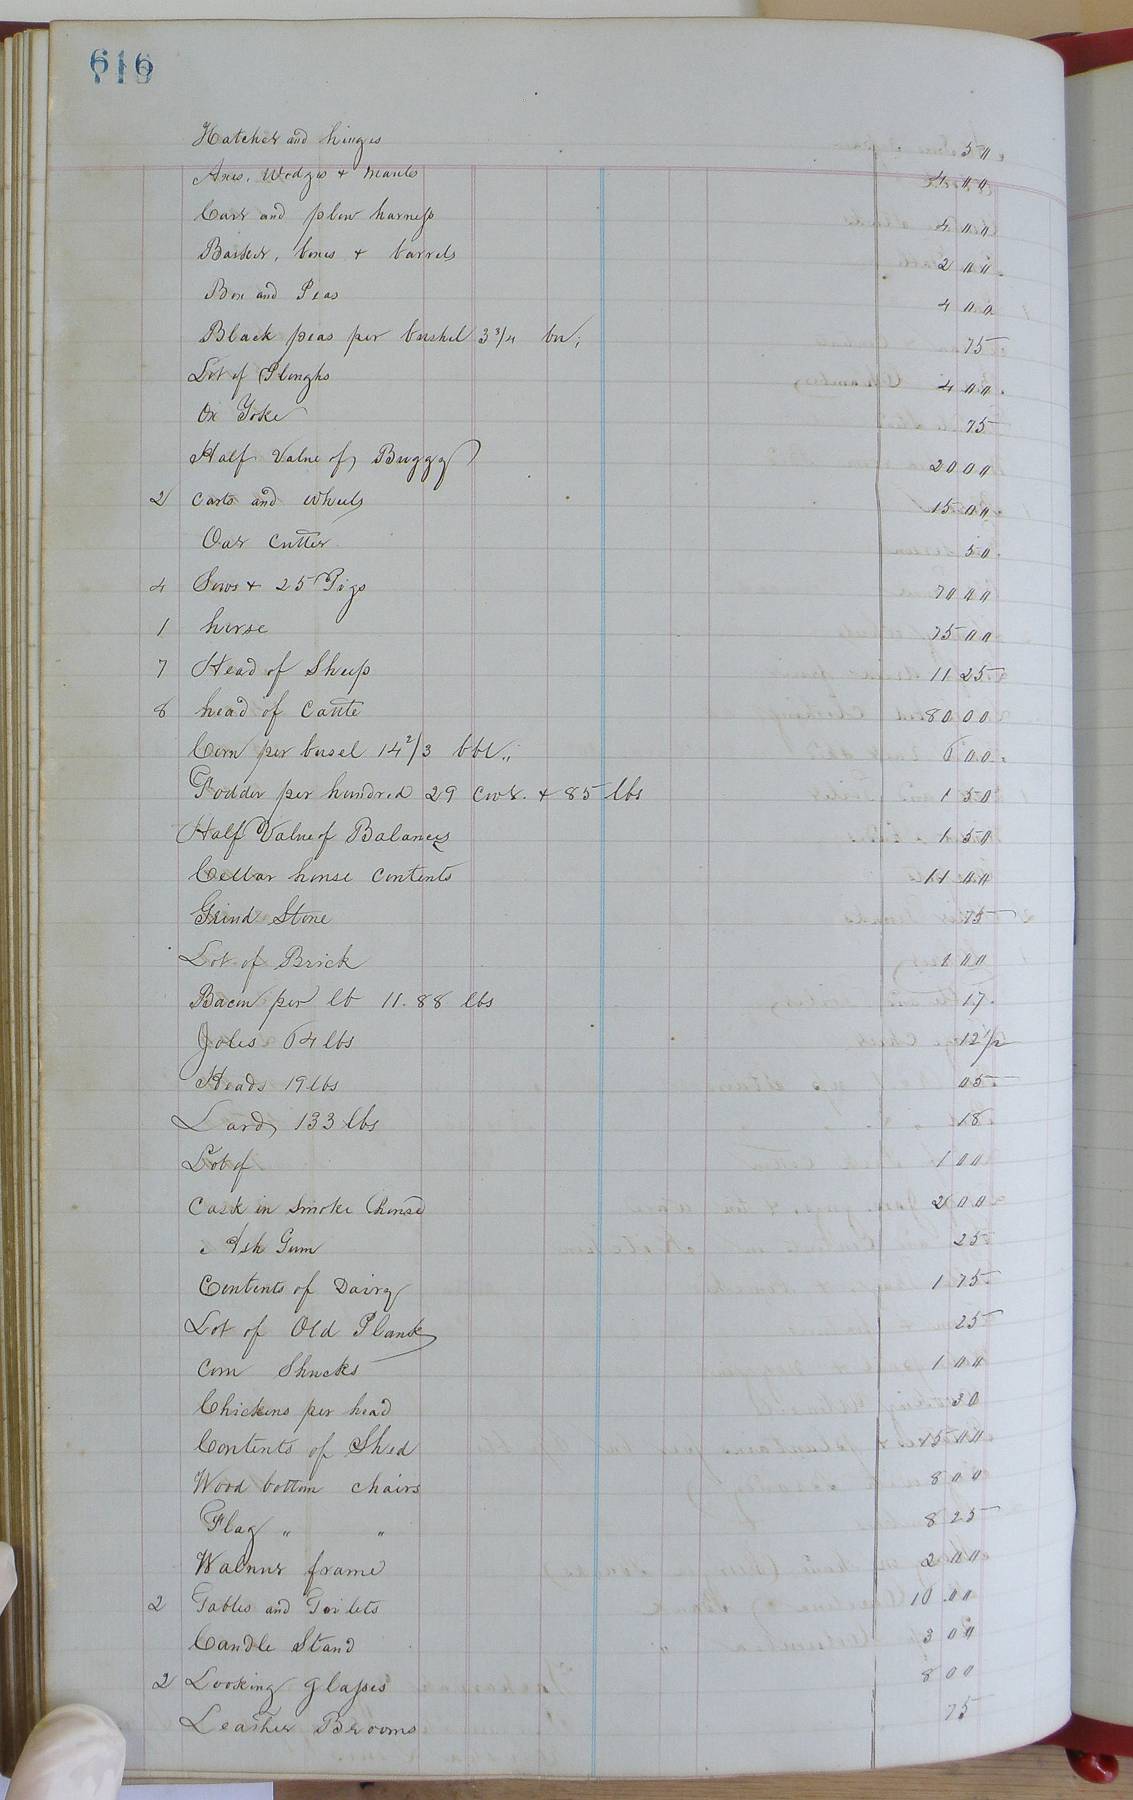 616
Hatchet and hinges 50
Axes, Wedges & mauls 4 00
Cart and plow harness 4 00
Basket, boxes & barrels 2 00
Box and Peas 4 00
Black peas per bushel 3 3/4 bu; 75
Lot of Ploughs 4 00
Ox Yoke 75
Half Value of Buggy 20 00
2 Carts and wheels 15 00
Oat Cutter 50
4 Sows & 25 Pigs 70 00
1 horse 75 00
7 Head of Sheep 11 25
8 head of Cattle 80 00
Corn per busel 14 2/3 bbl,, 6 00
Fodder per hundred 29 cwt. & 85 lbs 1 50
Half Value of Balances 1 50
Cellar house Contents 11 00
Grind Stone 75
Lot of Brick 1 00
Bacon per lb 11.88 lbs 17
Joles 64 lbs 12 1/2
Heads 19 lbs 05
Lard 133 lbs 18
Lot of 1 00
Cask in Smoke house 2 00
Ash Gum 25
Contents of Dairy 1 75
Lot of Old Plank 25
Corn Shucks 1 00
Chickens per head 30
Contents of Shed 15 00
Wood bottom chairs 8 00
Flag " " 8 25
Walnut frame 2 00
2 Tables and Toilets 10.00
Candle Stand 3 00
2 Looking glasses 8 00
Leather Brooms 75